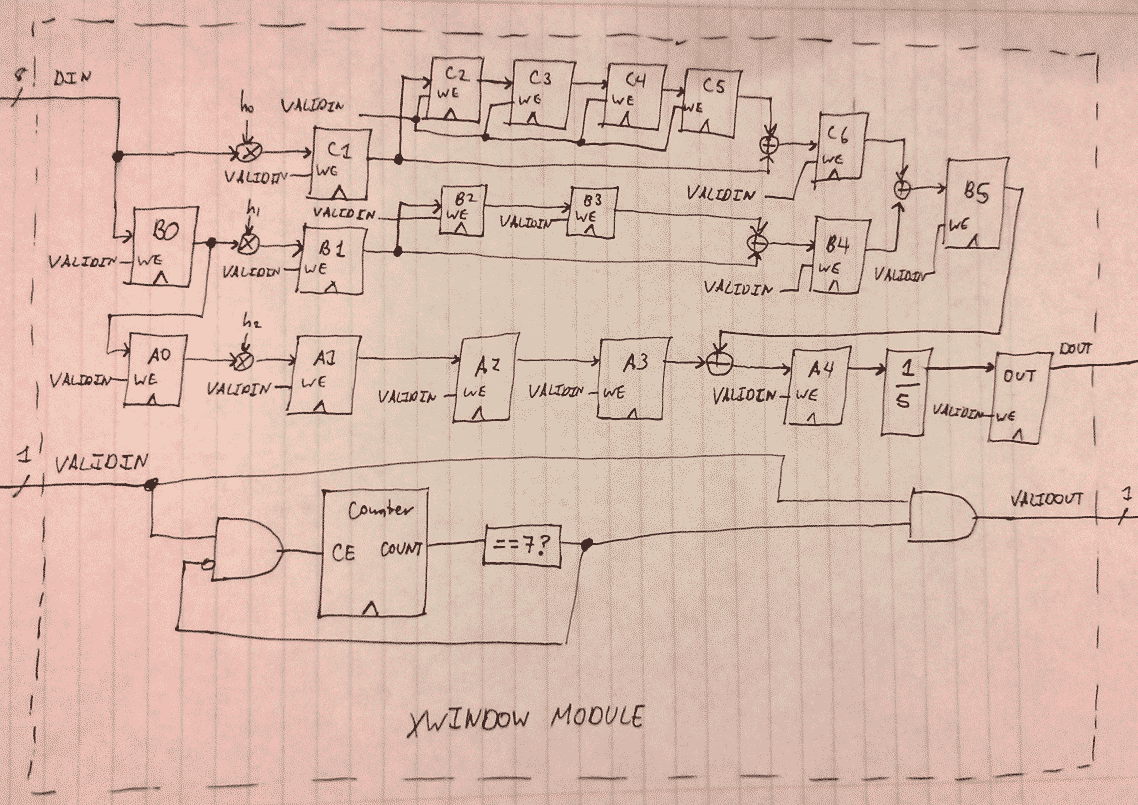 8 DIN
C2 WE
C3 WE
C4 WE
C5 WE
h0 VALIDIN
VALIDIN
C1 WE
VALIDIN
C6 WE
VALIDIN
B0 WE
h1
VALIDIN
B1 WE
VALIDIN
B2 WE
VALIDIN
B3 WE
VALIDIN
B4 WE
VALIDIN
B5 WE
VALIDIN
A0 WE
h2
VALIDIN
A1 WE
VALIDIN
A2 WE
VALIDIN
A3 WE
VALIDIN
A4 WE
1
5
VALIDIN
OUT WE
DOUT
1 VALIDIN
Counter
CE COUNT
==7?
VALIDOUT 1
XWINDOW MODULE